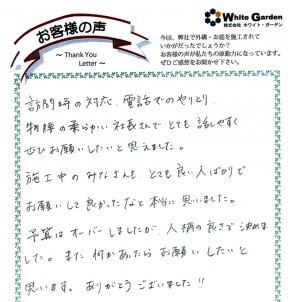 お客様の声
～ Thank You Letter ～
White Garden
株式会社 ホワイト・ガーデン
今回、弊社で外構・お庭を施工されて
いかがだったでしょうか？
お客様の声が私たちの原動力になっています。
ぜひご感想をお聞かせ下さい。
訪問時の対応、電話でのやりとり、
物腰の柔らかい社長さんで とても話しやすく
ぜひお願いしたいと思えました。
施工中のみなさんも とても良い人ばかりで
お願いして良かったなと本当に思いました。
予算はオーバーしましたが、人柄の良さで決めま
した。また何かあったらお願いしたいと
思います。ありがとうございました!!